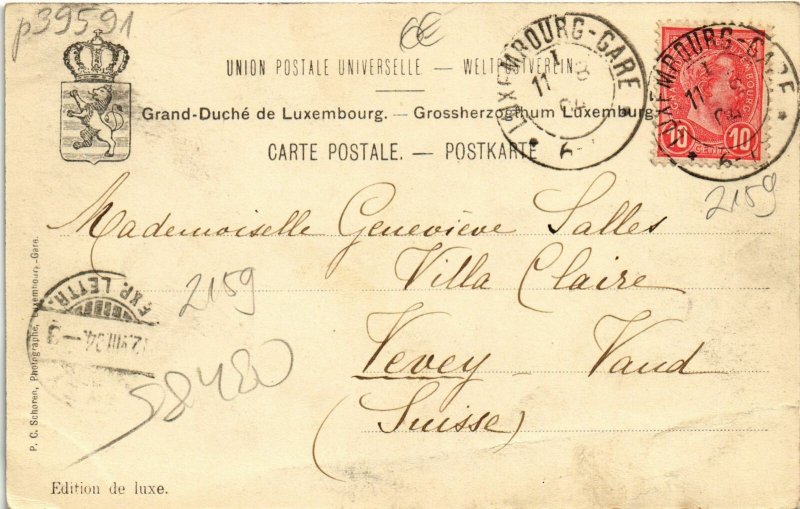 p39591
6€
UNION POSTALE UNIVERSELLE — WELTPOSTVEREIN
Grand-Duché de Luxembourg. — Grossherzogthum Luxemburg.
CARTE POSTALE. — POSTKARTE
LUXEMBOURG-GARE
11 8
6-7
LUXEMBOURG-GARE
11 8
10 10
2159
Mademoiselle Geneviève Salles
Villa Claire
Vevey - Vaud
(Suisse)
EXP. LETTR.
12.VIII.04.-3
2159
58480
P. C. Schoren, Photographe, Luxembourg-Gare.
Edition de luxe.